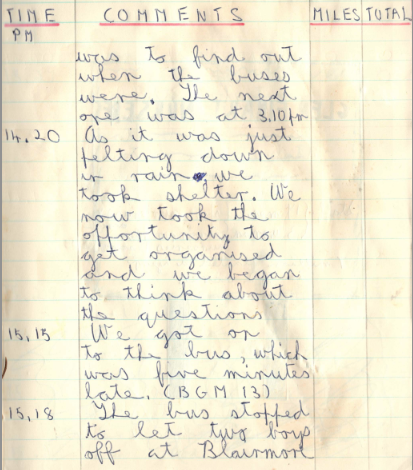 TIME COMMENTS MILES TOTAL
PM
was to find out
when the buses
were. The next
one was at 3.10pm
14.20 As it was just
pelting down
in rain, we
took shelter. We
now took the
opportunity to
get organised
and we began
to think about
the questions
15.15 We got on
to the bus, which
was five minutes
late. (BGM 13)
15.18 The bus stopped
to let two boys
off at Blairmore